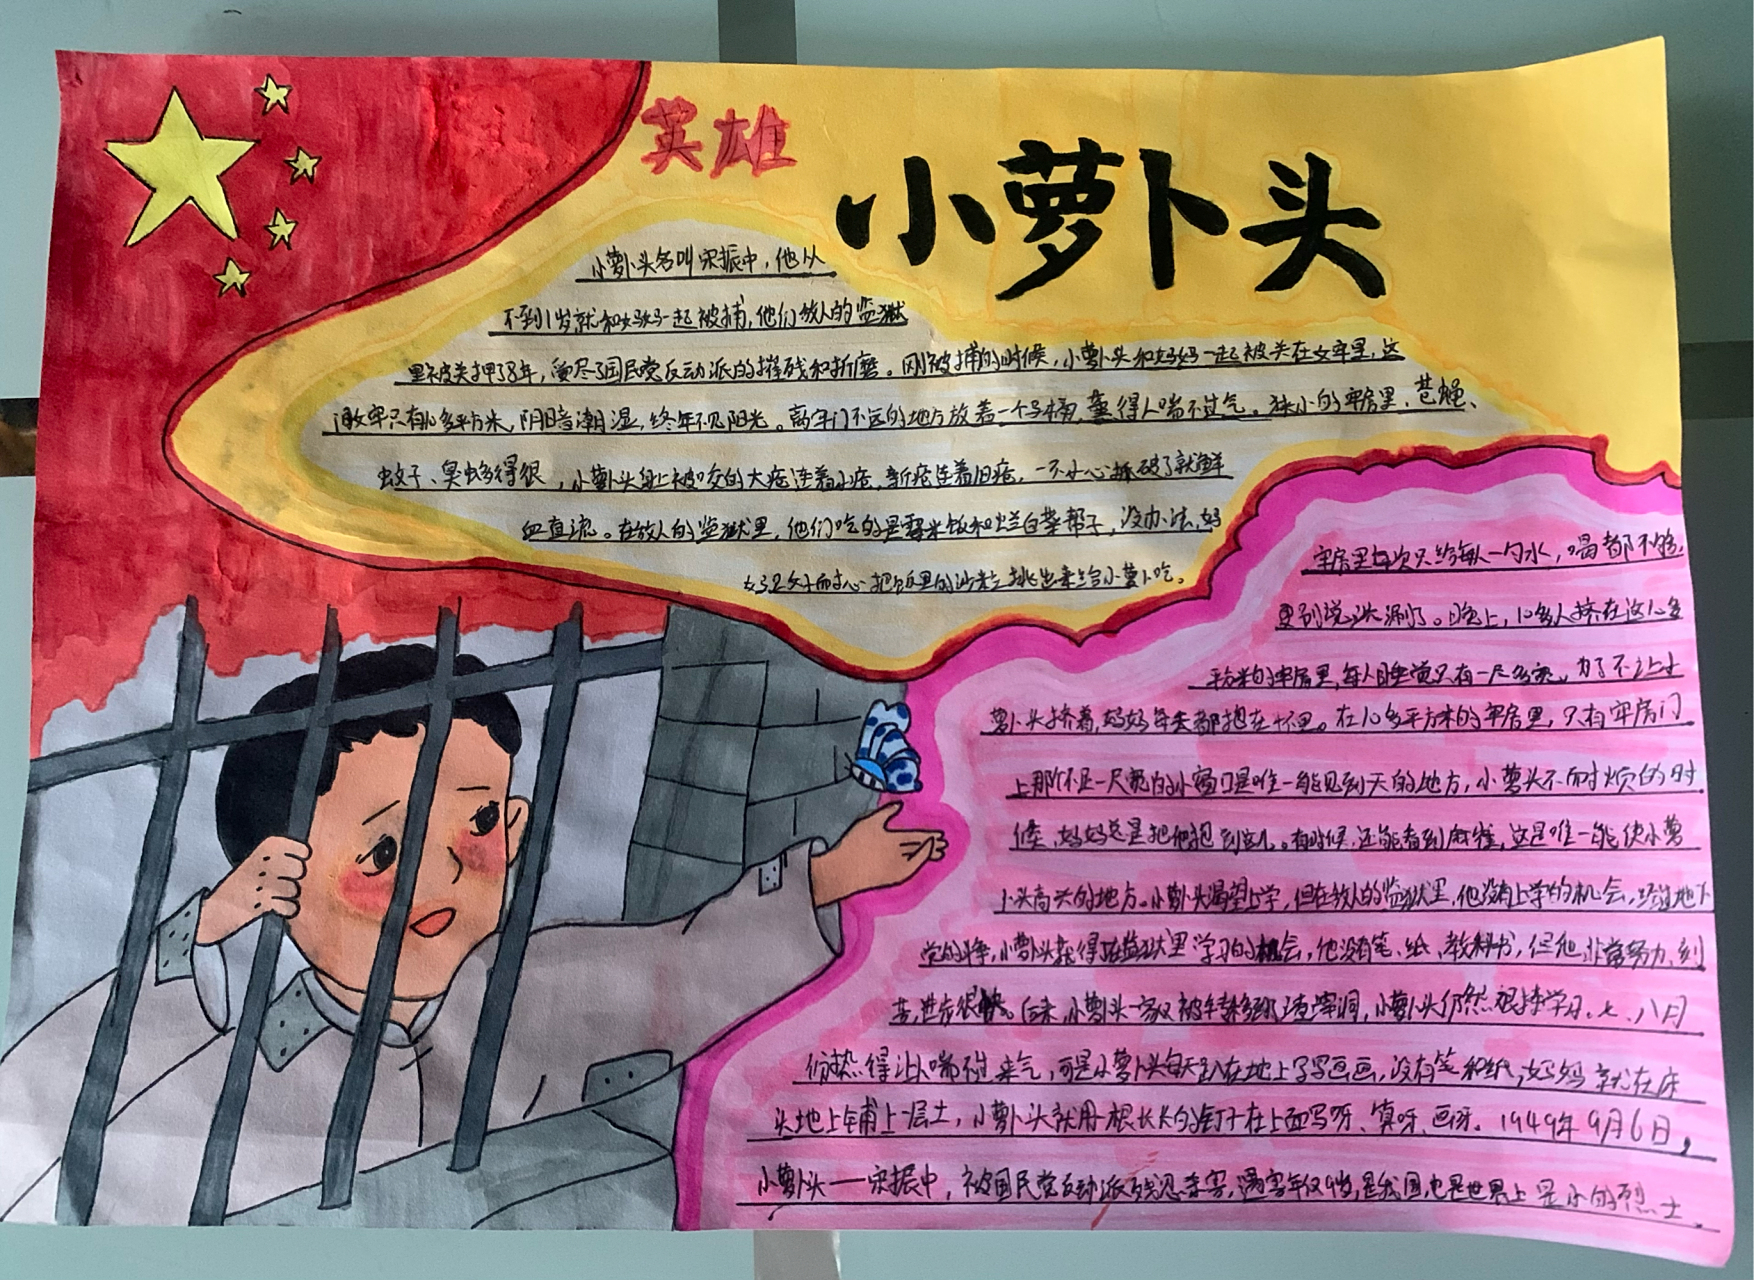 英雄
小萝卜头
小萝卜头名叫宋振中，他从
不到1岁就和妈妈一起被捕，他们敌人的监狱
里被关押了8年，受尽了国民党反动派的摧残和折磨。刚被捕的时候，小萝卜头和妈妈一起被关在女牢里，这
间女牢只有10多平方米，阴暗潮湿，终年不见阳光。离牢门不远的地方放着一个马桶，熏得人喘不过气。狭小的牢房里，苍蝇、
蚊子、臭虫多得很，小萝卜头身上被咬的大疮连着小疮，新疮连着旧疮，一不小心抓破了就鲜
血直流。在敌人的监狱里，他们吃的是霉米饭和烂白菜帮子，没办法，妈
妈只好耐心把饭里的沙粒挑出来给小萝卜吃。
牢房里每次只给每人一勺水，喝都不够，
更别说洗漱了。晚上，10多人挤在这10多
平方米的牢房里，每人睡觉只有一尺多宽。为了不让小
萝卜头挤着，妈妈每天都抱在怀里。在10多平方米的牢房里，只有牢房门
上那个不足一尺宽的小窗口是唯一能见到天的地方，小萝头不耐烦的时
候，妈妈总是把他抱到窗口。有时候，还能看到麻雀，这是唯一能使小萝
卜头高兴的地方。小萝卜头渴望上学，但在敌人的监狱里，他没有上学的机会，经过地下
党的斗争，小萝卜头获得在监狱里学习的机会，他没有笔、纸、教科书，但他非常努力、刻
苦，进步很快。后来，小萝卜头一家又被转移到渣滓洞，小萝卜头仍然坚持学习。七、八月
份热得让人喘不过来气，可是小萝卜头每天趴在地上写写画画，没有笔和纸，妈妈就在床
头地上铺上一层土，小萝卜头就用一根长长的钉子在上面写呀、算呀、画呀。1949年9月6日，
小萝卜头——宋振中，被国民党反动派残忍杀害，遇害年仅9岁，是我国也是世界上最小的烈士。